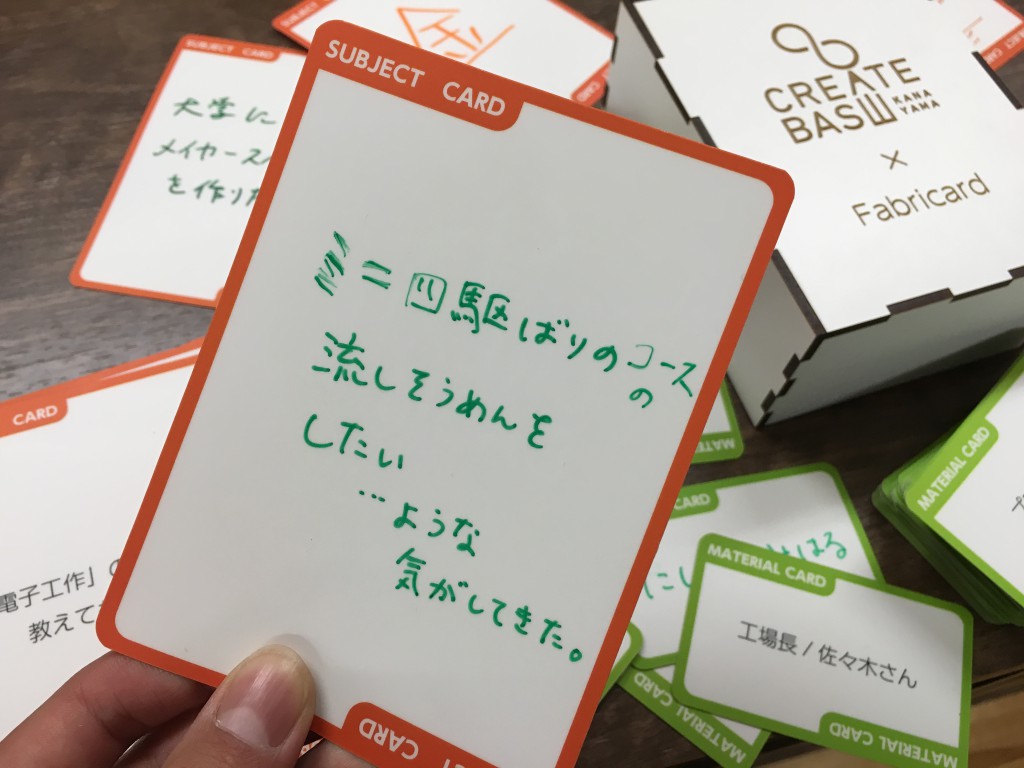 SUBJECT CARD
ミニ四駆ばりのコースの
流しそうめんを
したい
…ような
気がしてきた。
CARD
SUBJECT CARD
犬学に
メイカース
を作りた
CARD
CARD
電子工作」の
教えて
CREATE
BASE
KANA
YAMA
×
Fabricard
MATERIAL
CARD
はる
にし
MATERIAL CARD
工場長/佐々木さん
MATERIAL CARD
MATERIAL CARD
MATERIAL CARD